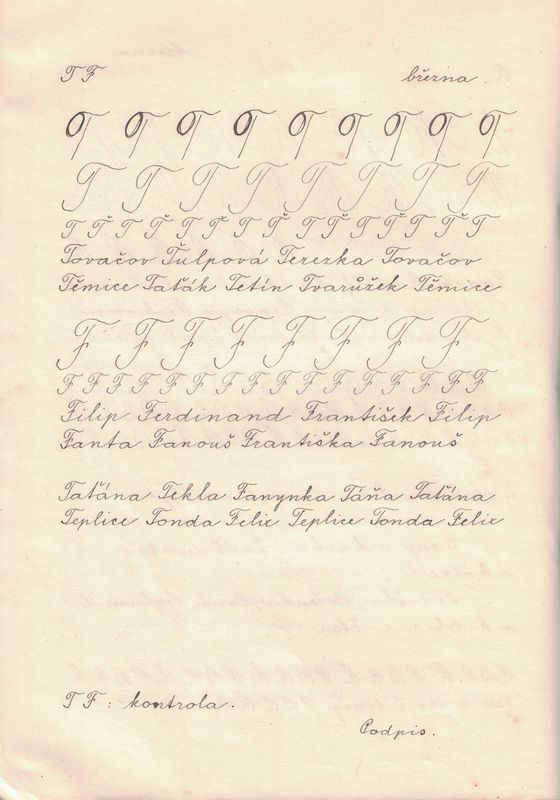 T F března.
T T T T T T T T T
T T T T T T T T
T Ť T Ť T Ť T Ť T Ť T Ť T Ť T
Tovačov Ťulpová Terezka Tovačov
Těmice Taťák Tetín Tvarůžek Těmice
F F F F F F F F
F F F F F F F F F F F F F F F F
Filip Ferdinand František Filip
Fanta Fanouš Františka Fanouš
Taťána Tekla Fanynka Táňa Taťána
Teplice Tonda Felix Teplice Tonda Felix
T F : kontrola.
Podpis.